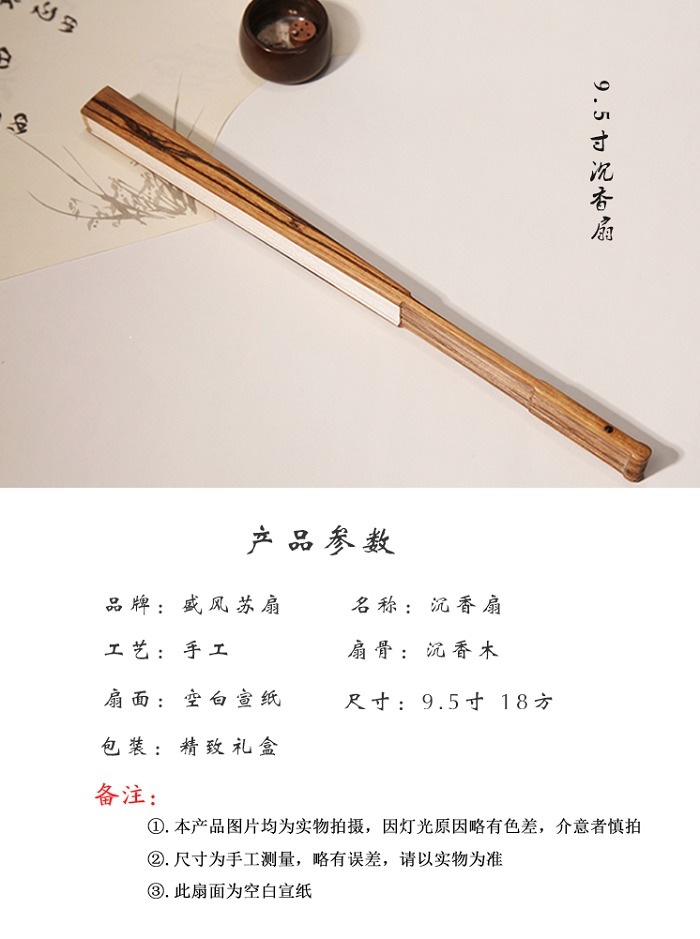 9.5寸沉香扇
产品参数
品牌：盛风苏扇 名称：沉香扇
工艺：手工 扇骨：沉香木
扇面：空白宣纸 尺寸：9.5寸 18方
包装：精致礼盒
备注：
①.本产品图片均为实物拍摄，因灯光原因略有色差，介意者慎拍
②.尺寸为手工测量，略有误差，请以实物为准
③.此扇面为空白宣纸